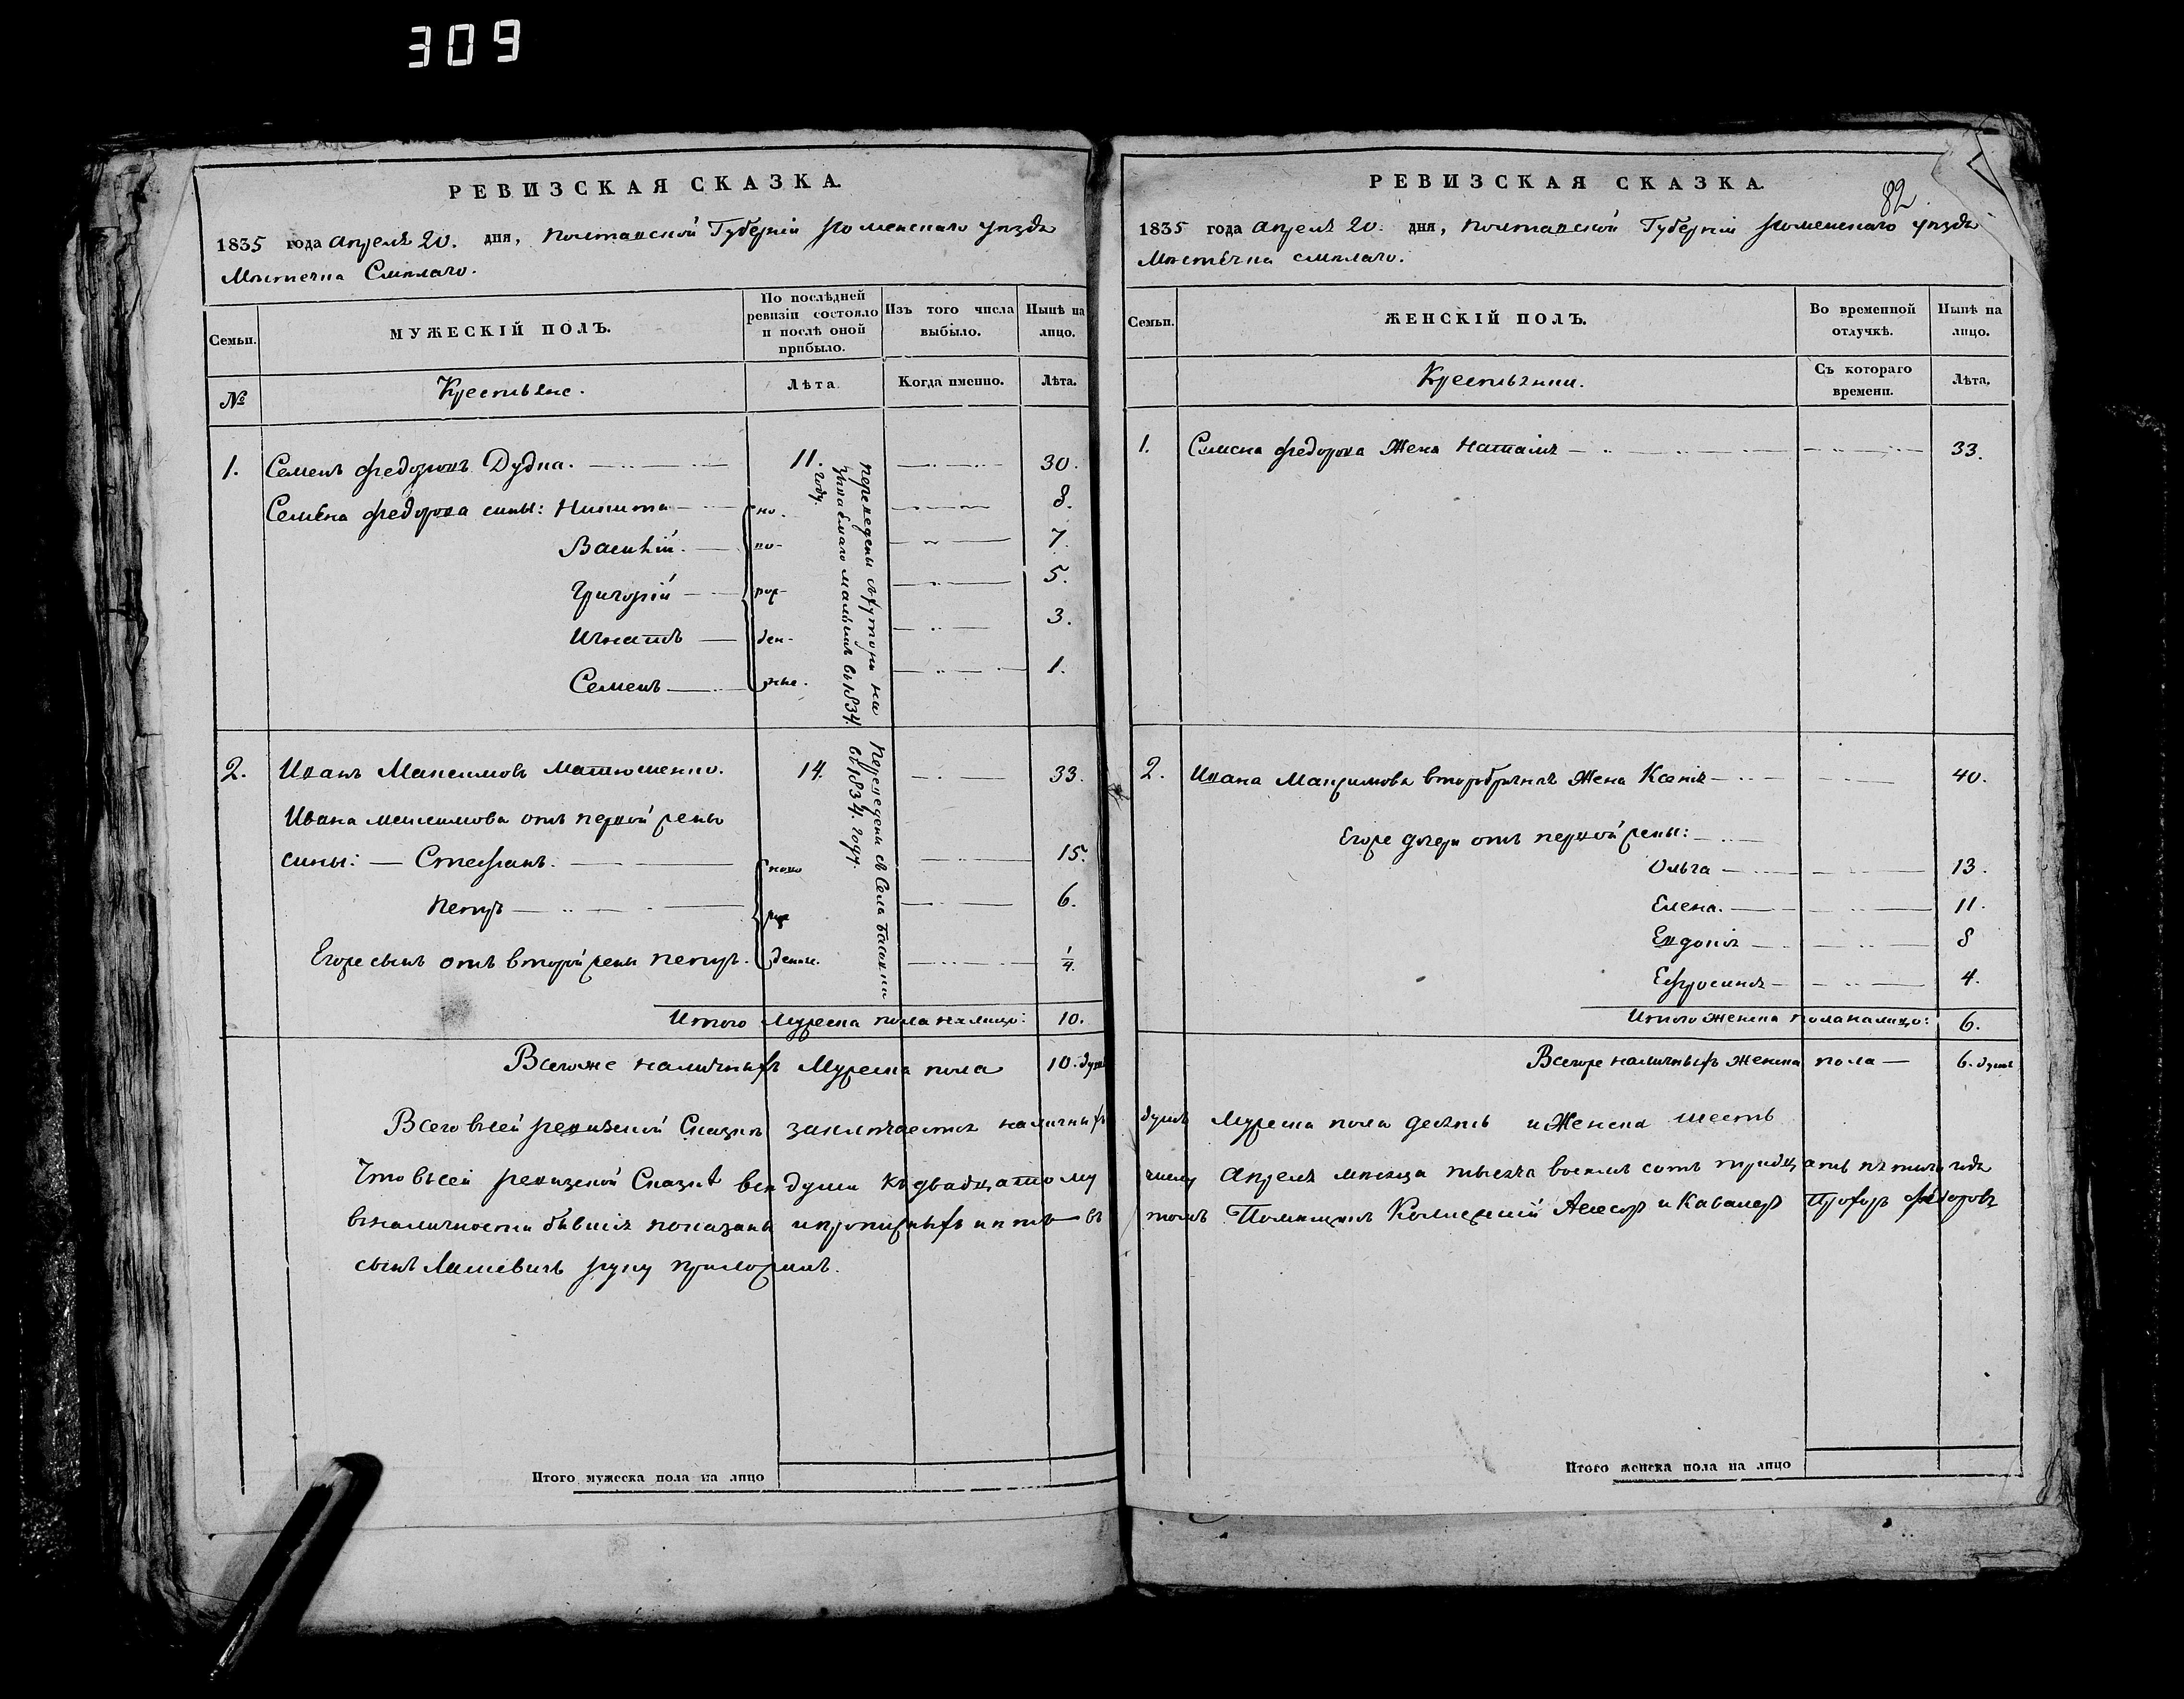 309
РЕВИЗСКАЯ СКАЗКА.
1835 года Апреля 20. дня, Полтавской Губерніи Роменскаго уезда
Местечка Смелаго.
Семьи.
МУЖЕСКІЙ ПОЛЪ.
По послѣдней ревизіи состояло и послѣ оной прибыло.
Изъ того числа выбыло.
Нынѣ на лицо.
№
Крестьяне.
Лѣта.
Когда именно.
Лѣта.
1. Семенъ Федоровъ Дудка. 11. 30.
Семена Федорова сины: Никита 8.
Василій. 7.
Григорій 5.
Игнатъ 3.
Семенъ 1.
но-
во-
рож-
ден-
ные.
переведены въ 1834. году.
2. Иванъ Максимовъ Матюшенко. 14. 33.
Ивана Максимова отъ первой жены
сины: Стефанъ. 15.
Петръ 6.
Егоже сынъ отъ второй жены Петръ. 1/4.
ново
рож
денные.
Переведены съ Села Басовки
въ 1834. году.
Итого Мужеска пола налицо: 10.
Всегоже наличныхъ Мужеска пола 10. душъ
Всего всей ревизской Сказке заключается наличныхъ
Что всей ревизской Сказке все души къ двадцатому
вналичности бывшія показаны и прописныхъ нетъ въ
сынъ руку приложилъ.
Итого мужеска пола на лицо
РЕВИЗСКАЯ СКАЗКА.
82
1835 года Апреля 20. дня, Полтавской Губерніи Роменскаго уезда
Местечка Смелаго.
Семьи.
ЖЕНСКІЙ ПОЛЪ.
Во временной отлучкѣ.
Нынѣ на лицо.
Крестьянки.
Съ котораго времени.
Лѣта.
1. Семена Федорова Жена Наталия 33.
2. Ивана Максимова второбрачная Жена Ксения 40.
Егоже дочери отъ первой жены:
Ольга 13.
Елена. 11.
Евдокия 8
Ефросиния 4.
Итого Женска пола налицо: 6.
Всегоже наличныхъ Женска пола 6. душъ
душъ Мужеска пола десять и Женска шесть
числу Апреля месяца тысяча восемь сотъ тридцать пятаго года
томъ Помещикъ Колежский Асесоръ и Кавалеръ Прохоръ Федоровъ
Итого женска пола на лицо